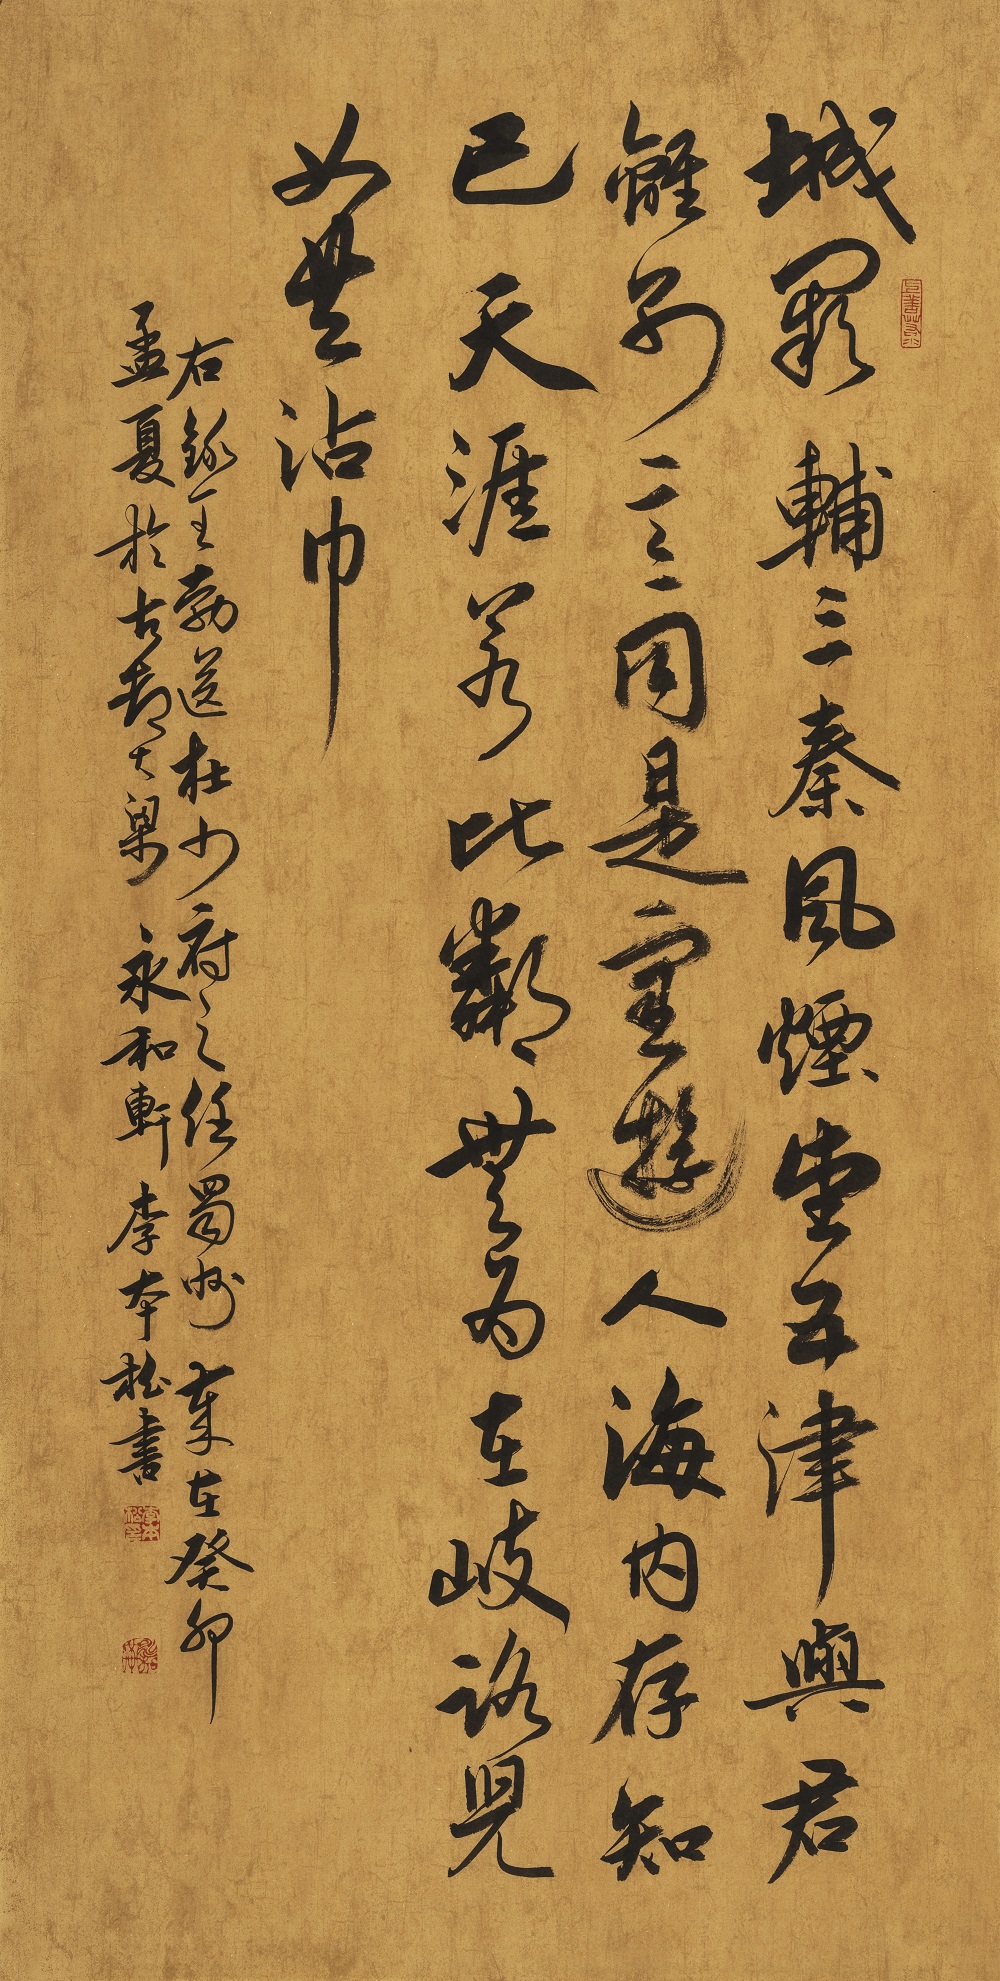 城闕輔三秦風煙望五津與君
離別意同是宦遊人海內存知
已天涯若比鄰無為在岐路兒
女共沾巾
右錄王勃送杜少府之任蜀州歲在癸卯
孟夏於古都大梁永和軒李本松書